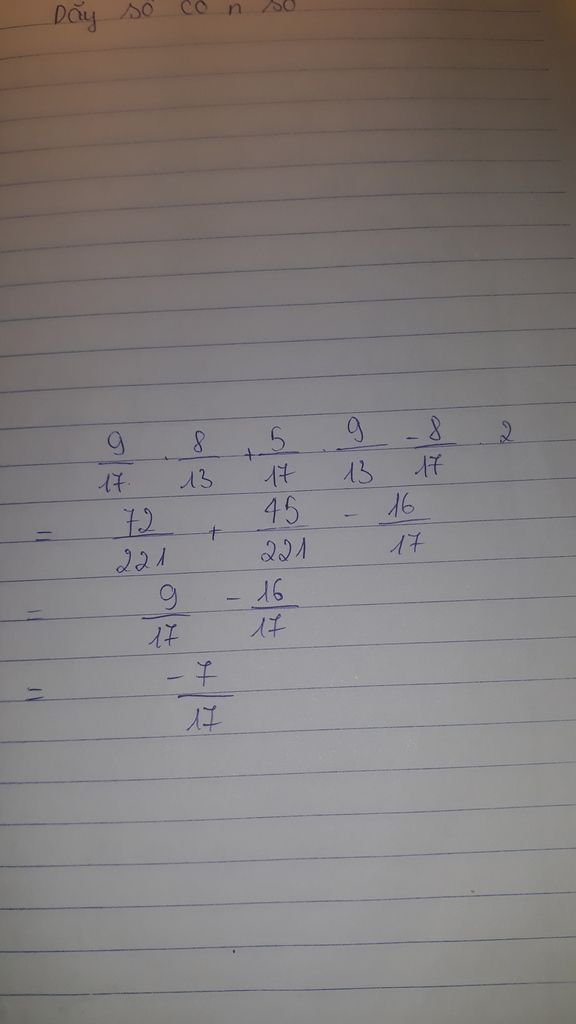 Dãy số có n số
9/17 . 8/13 + 5/17 . 9/13 - 8/17 . 2
= 72/221 + 45/221 - 16/17
= 9/17 - 16/17
= -7/17